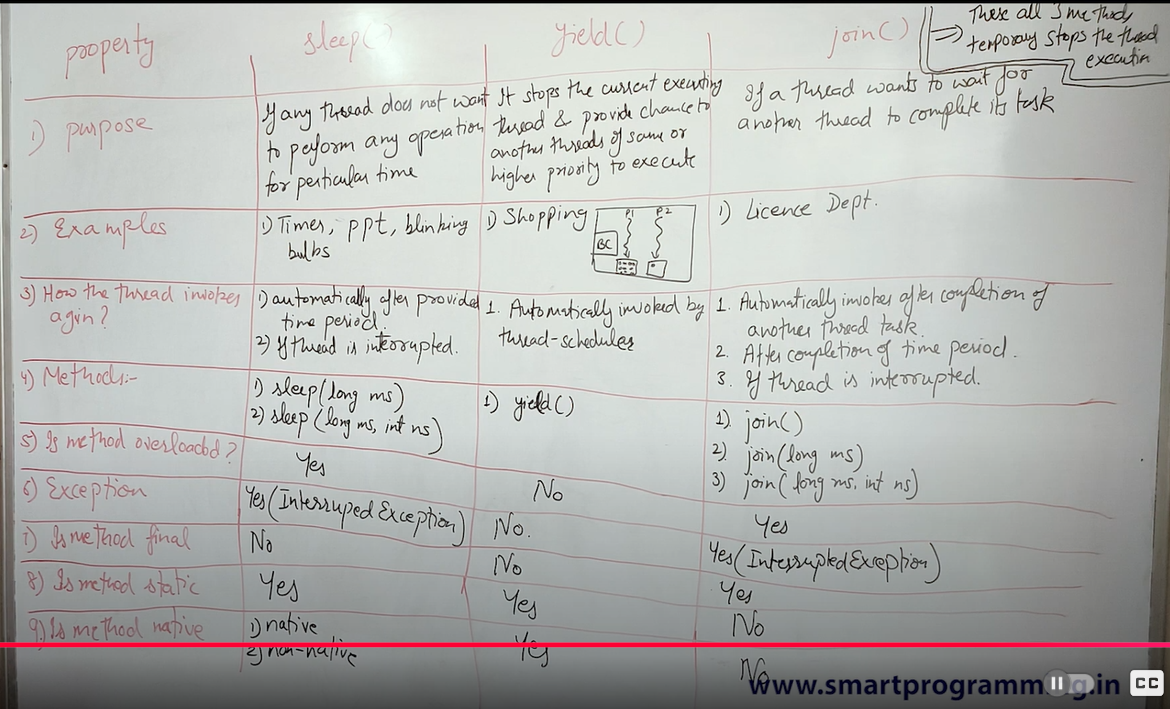 property
sleep()
yield()
join()
These all 3 methods
⇒ temporary stops the thread
execution
1) purpose
If any thread does not want
to perform any operation
for perticular time
It stops the current executing
thread & provide chance to
another threads of same or
higher priority to execute
If a thread wants to wait for
another thread to complete its task
2) Examples
1) Timer, ppt, blinking
bulbs
1) Shopping
P1 P2
BC
1) Licence Dept.
3) How the thread invokes
agin?
1) automatically after provided
time period.
2) If thread is interrupted.
1. Automatically invoked by
thread-scheduler
1. Automatically invokes after completion of
another thread task.
2. After completion of time period.
3. If thread is interrupted.
4) Methods:-
1) sleep(long ms)
2) sleep(long ms, int ns)
1) yield()
1). join()
2) join(long ms)
3) join(long ms, int ns)
5) Is method overloaded?
Yes
No
Yes
6) Exception
Yes(InterrupedException)
No.
Yes(InterruptedException)
7) Is method final
No
No
Yes
8) Is method static
Yes
Yes
No
9) Is method native
1) native
2) non-native
Yes
No
www.smartprogramming.in
CC